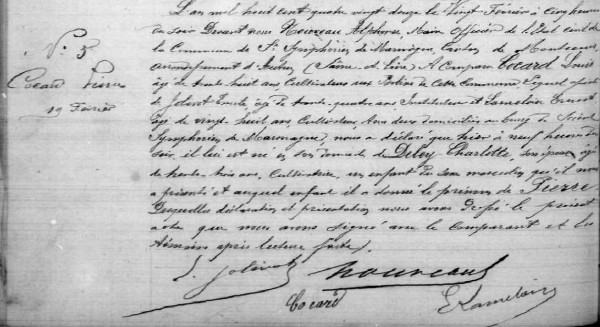 N°. 5
Cocard Pierre
19 Février
L'an mil huit cent quatre vingt douze le Vingt Février à Cinq heures
du soir Devant nous Nouveau Alphonse, Maire Officier de l'Etat civil de
la Commune de St. Symphorien de Marmagne, Canton de Montcenis
arrondissement d'Autun, (Saône et Loire) A Comparu Cocard Louis
âgé de trente huit ans, Cultivateur aux de Cette Commune Lequel assisté
de Jolivot âgé de trente quatre ans Instituteur et Lameloise Ernest
âgé de vingt huit ans, Cultivateur tous deux domiciliés au bourg de Saint
Symphorien de Marmagne, nous a déclaré que hier à neuf heures du
soir, il lui est né en son domicile de Deley Charlotte, son épouse, âgée
de trente trois ans, Cultivatrice, un enfant du sexe masculin qu'il nous
a présenté et auquel enfant il a donné le prénom de Pierre
Lesquelles déclaration et présentation nous avons le présent
acte que nous avons signé avec le Comparant et les
témoins après lecture faite.
Jolivot Nouveau
Cocard
E Lameloise